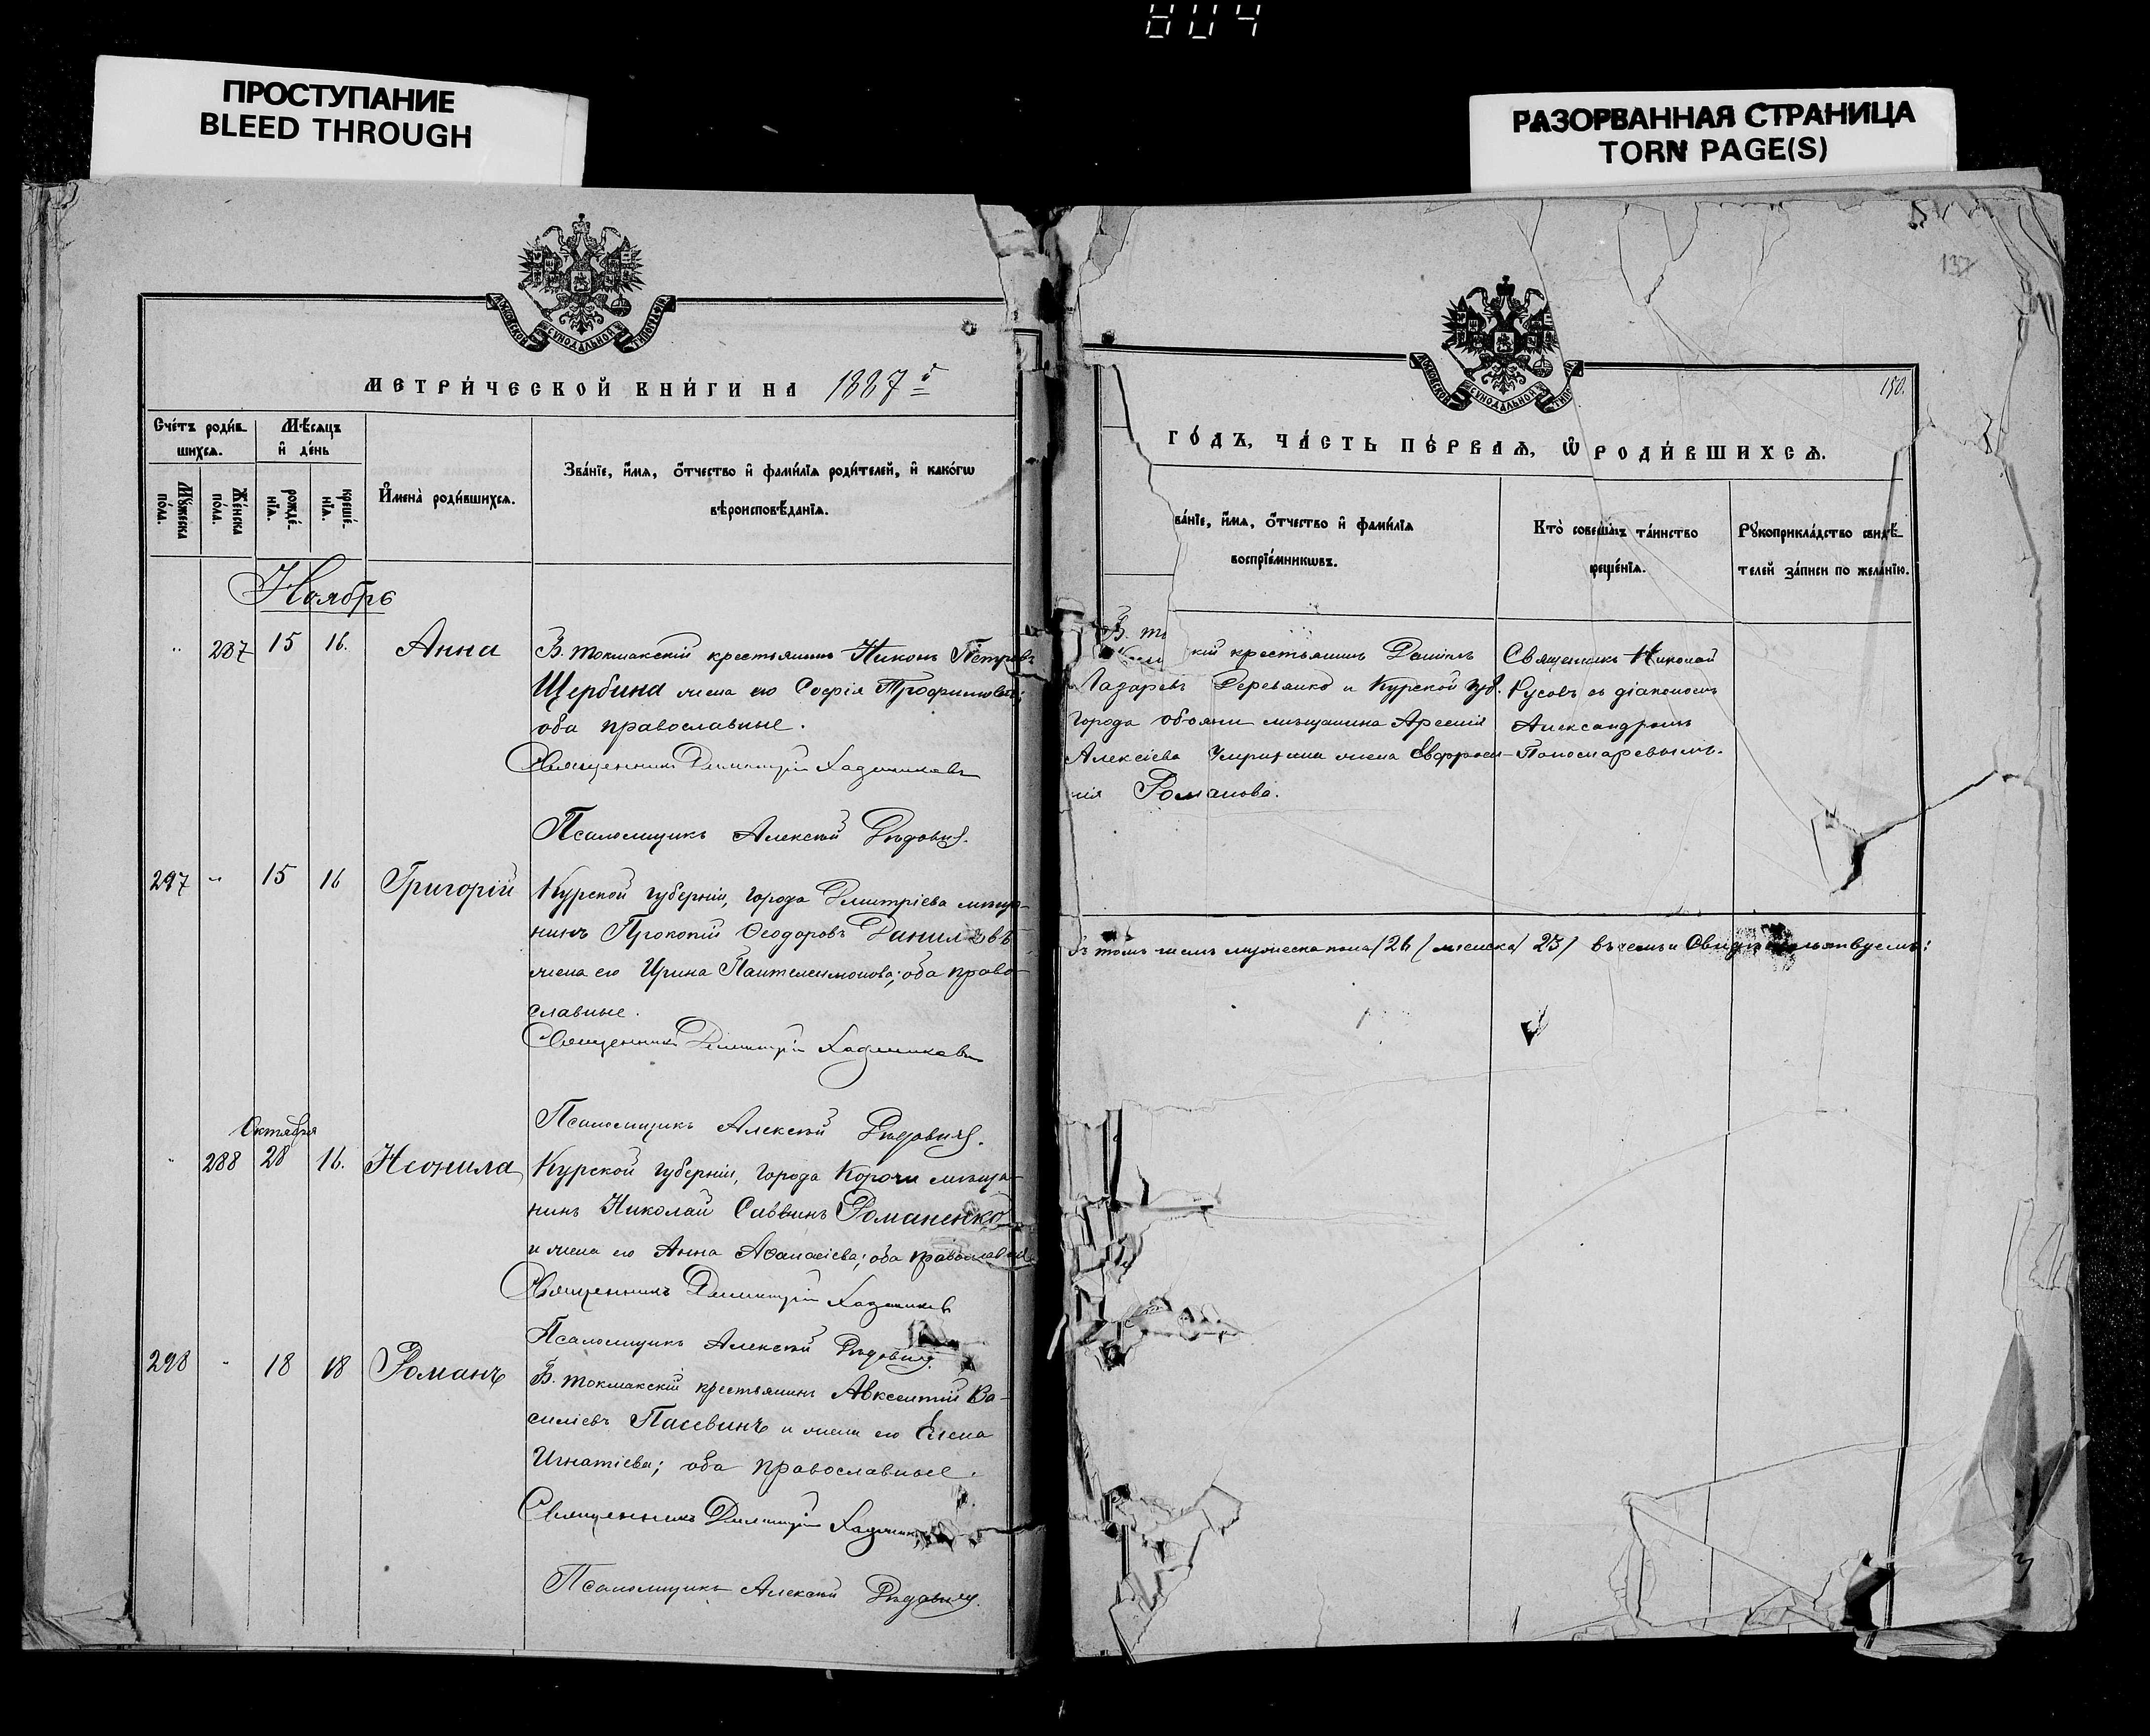 804
ПРОСТУПАНИЕ
BLEED THROUGH
РАЗОРВАННАЯ СТРАНИЦА
TORN PAGE(S)
МОСКОВСКОЙ СѴНОДАЛЬНОЙ ТИПОГРАФІИ
МЕТРИ́ЧЕСКОЙ КНИ́ГИ НА 1887 й
Сче́тъ роди́в-
шихсѧ.
Мѣ́сѧцъ
и҆ де́нь
Мꙋ́жеска
по́ла.
Же́нска
по́ла.
рожде́-
нїѧ.
креще́-
нїѧ.
И҆мена̀ роди́вшихсѧ.
Зва́нїе, и҆́мѧ, ѻ҆́тчество и҆ фами́лїѧ роди́телей, и҆ како́гѡ
вѣроисповѣ́данїѧ.
Ноябрь
287 15 16. Анна
В. Токмакскій крестьянинъ Никонъ Петровъ
Щербина жена его Софія Трофимова;
оба православные.
Священникъ Димитрій
Псаломщикъ Алексѣй
297 " 15 16 Григорій
Курской губерніи, города Дмитріева мѣща-
нинъ Прокопій Ѳеодоровъ Даниловъ
жена его Ирина Пантелеимонова; оба право-
славные.
Священникъ Димитрій
Псаломщикъ Алексѣй
Октября
288 28 16. Неонила
Курской губерніи, города Корочи мѣща-
нинъ Николай Саввинъ Романенко
и жена его Анна Аѳанасіева; оба православные
Священникъ Димитрій
Псаломщикъ Алексѣй
298 " 18 18 Романъ
В. Токмакскій крестьянинъ Авксентій Ва-
силіевъ и жена его Елена
Игнатіева; оба православные.
Священникъ Димитрій
Псаломщикъ Алексѣй
137
МОСКОВСКОЙ СѴНОДАЛЬНОЙ ТИП
150.
ГО́ДЪ, ЧА́СТЬ ПЕ́РВАѦ, Ѡ҆ РОДИ́ВШИХСѦ.
ва́нїе, и҆́мѧ, ѻ҆́тчество и҆ фами́лїѧ
воспрїе́мникѡвъ.
Кто̀ соверша́лъ та́инство
креще́нїѧ.
Рꙋкоприкла́дство свидѣ́-
телей за́писи по жела́нїю.
В. То кій крестьянинъ Даніилъ
Лазаревъ Деревянко и Курской губ.
города Обояни мѣщанина Арсенія
Алексіева жена Евфроси-
нія Романова.
Священникъ Николай
Русовъ съ діакономъ
Александромъ
Пономаревымъ.
въ томъ числѣ мужеска пола /26/ женска /23/ въ чемъ и свидѣтельствуемъ: